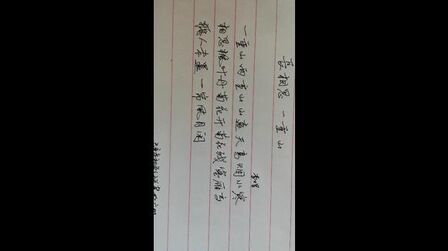 長相思 一重山
李煜
一重山两重山山遠天高烟水寒
相思楓叶丹菊花开菊花残塞雁高
飛人未還一帘風月闲